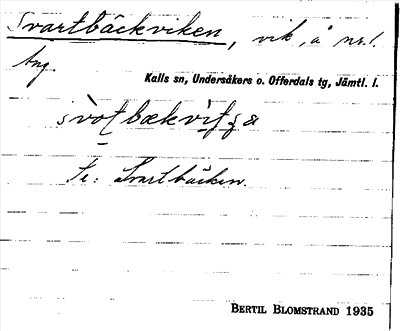 Svartbäckviken, vik, å nr.1.
Ång.
Kalls sn, Undersåkers o. Offerdals tg, Jämtl. l.
Se: Svartbäcken.
BERTIL BLOMSTRAND 1935